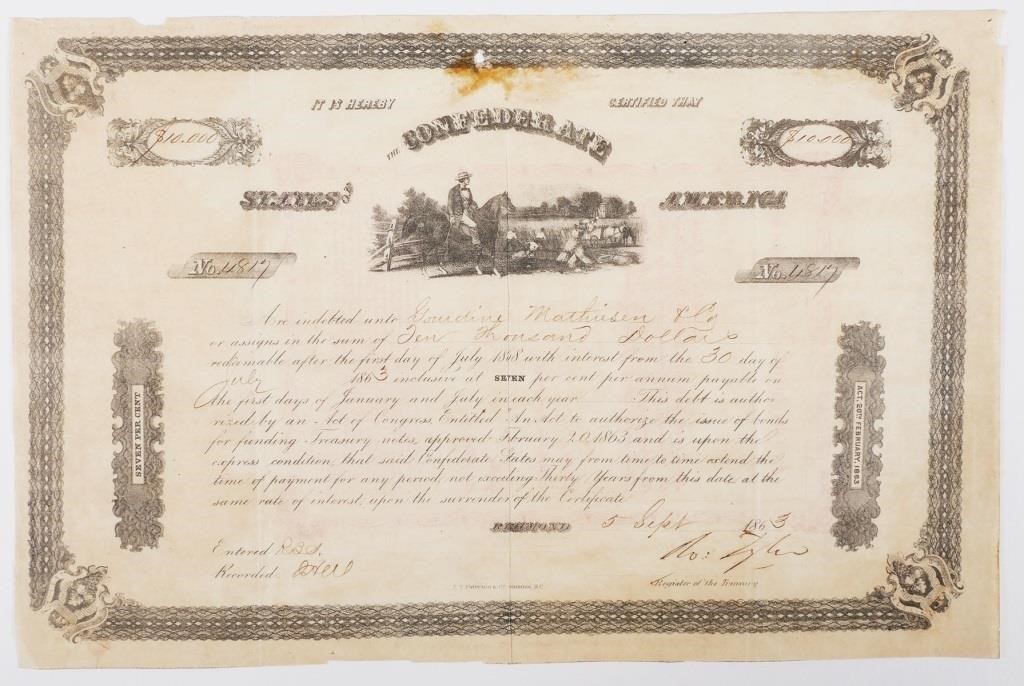 IT IS HEREBY CERTIFIED THAT
$10.000 $10.000
THE CONFEDERATE
STATES OF AMERICA
No. 4817 No. 4817
Are indebted unto Gourdine Mathiesen & Co
or assigns in the sum of Ten Thousand Dollars
redeemable after the first day of July 1868 with interest from the 30 day of
July 1863 inclusive at SEVEN per cent per annum payable on
the first days of January and July in each year This debt is author
rized by an Act of Congress, Entitled "An Act to authorize the issue of bonds
for funding Treasury notes, approved February 20, 1863 and is upon the
express condition, that said Confederate States may from time to time extend the
time of payment for any period, not exceeding Thirty Years from this date at the
same rate of interest, upon the surrender of the Certificate
SEVEN PER CENT
ACT, 20TH FEBRUARY, 1863
RICHMOND 5 Sept 1863
Entered
Recorded
Ro: Tyler
Register of the Treasury